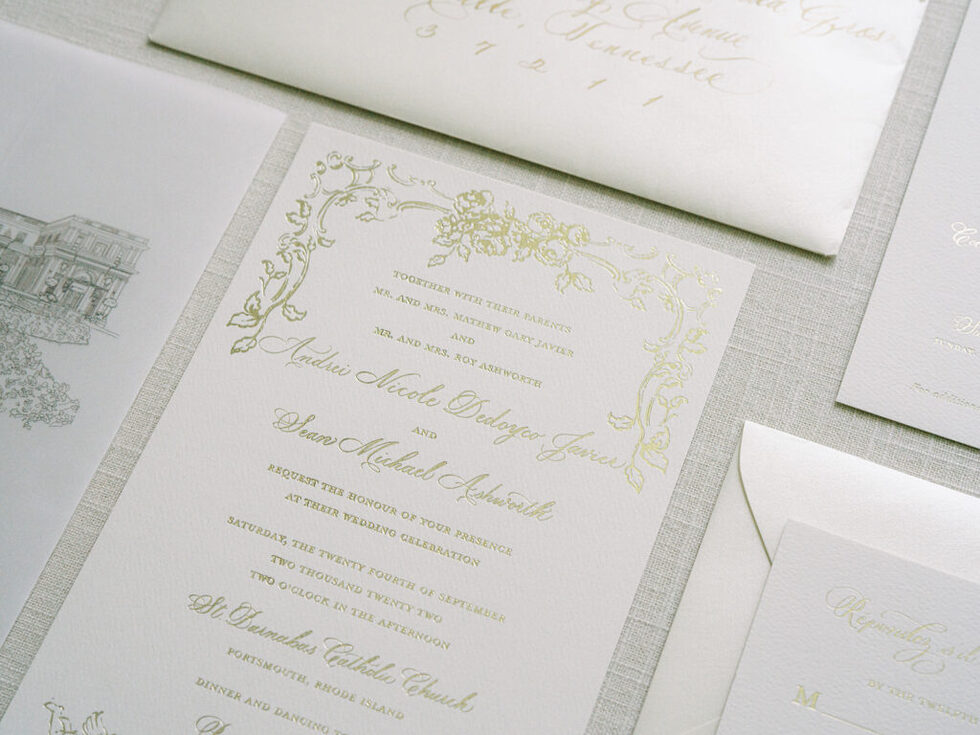 Gyros
Avenue
Tennessee
3 7 2 1 1
TOGETHER WITH THEIR PARENTS
MR. AND MRS. MATHEW GARY JAVIER
AND
MR. AND MRS. ROY ASHWORTH
Andrei Nicole Dedoyco Javier
AND
Sean Michael Ashworth
REQUEST THE HONOUR OF YOUR PRESENCE
AT THEIR WEDDING CELEBRATION
SATURDAY, THE TWENTY FOURTH OF SEPTEMBER
TWO THOUSAND TWENTY TWO
TWO O'CLOCK IN THE AFTERNOON
St. Barnabas Catholic Church
PORTSMOUTH, RHODE ISLAND
DINNER AND DANCING
BY THE
M